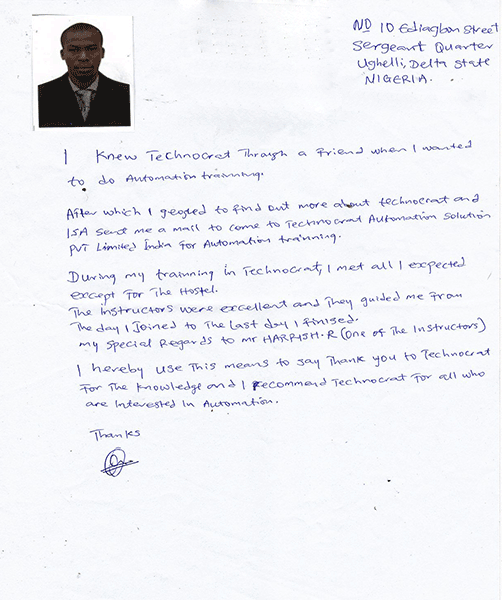 NO 10 Ediagbon Street
Sergeant Quarter
Ughelli, Delta State
NIGERIA.
I Knew Technocrat Through a Friend when I wanted
to do Automation trainning.
After which I geogled to find out more about technocrat and
ISA sent me a mail to come to Technocrat Automation Solution
PVT Limited India for Automation trainning.
During my trainning in Technocrat, I met all I expected
except For The Hostel.
The Instructors were excellent and They guided me From
The day I Joined to The Last day I finised.
my Special Regards to Mr HARRISH.R (One of The Instructors)
I hereby use This means to say Thank you to Technocrat
For The Knowledge and I Recommend Technocrat For all who
are Interested In Automation.
Thanks